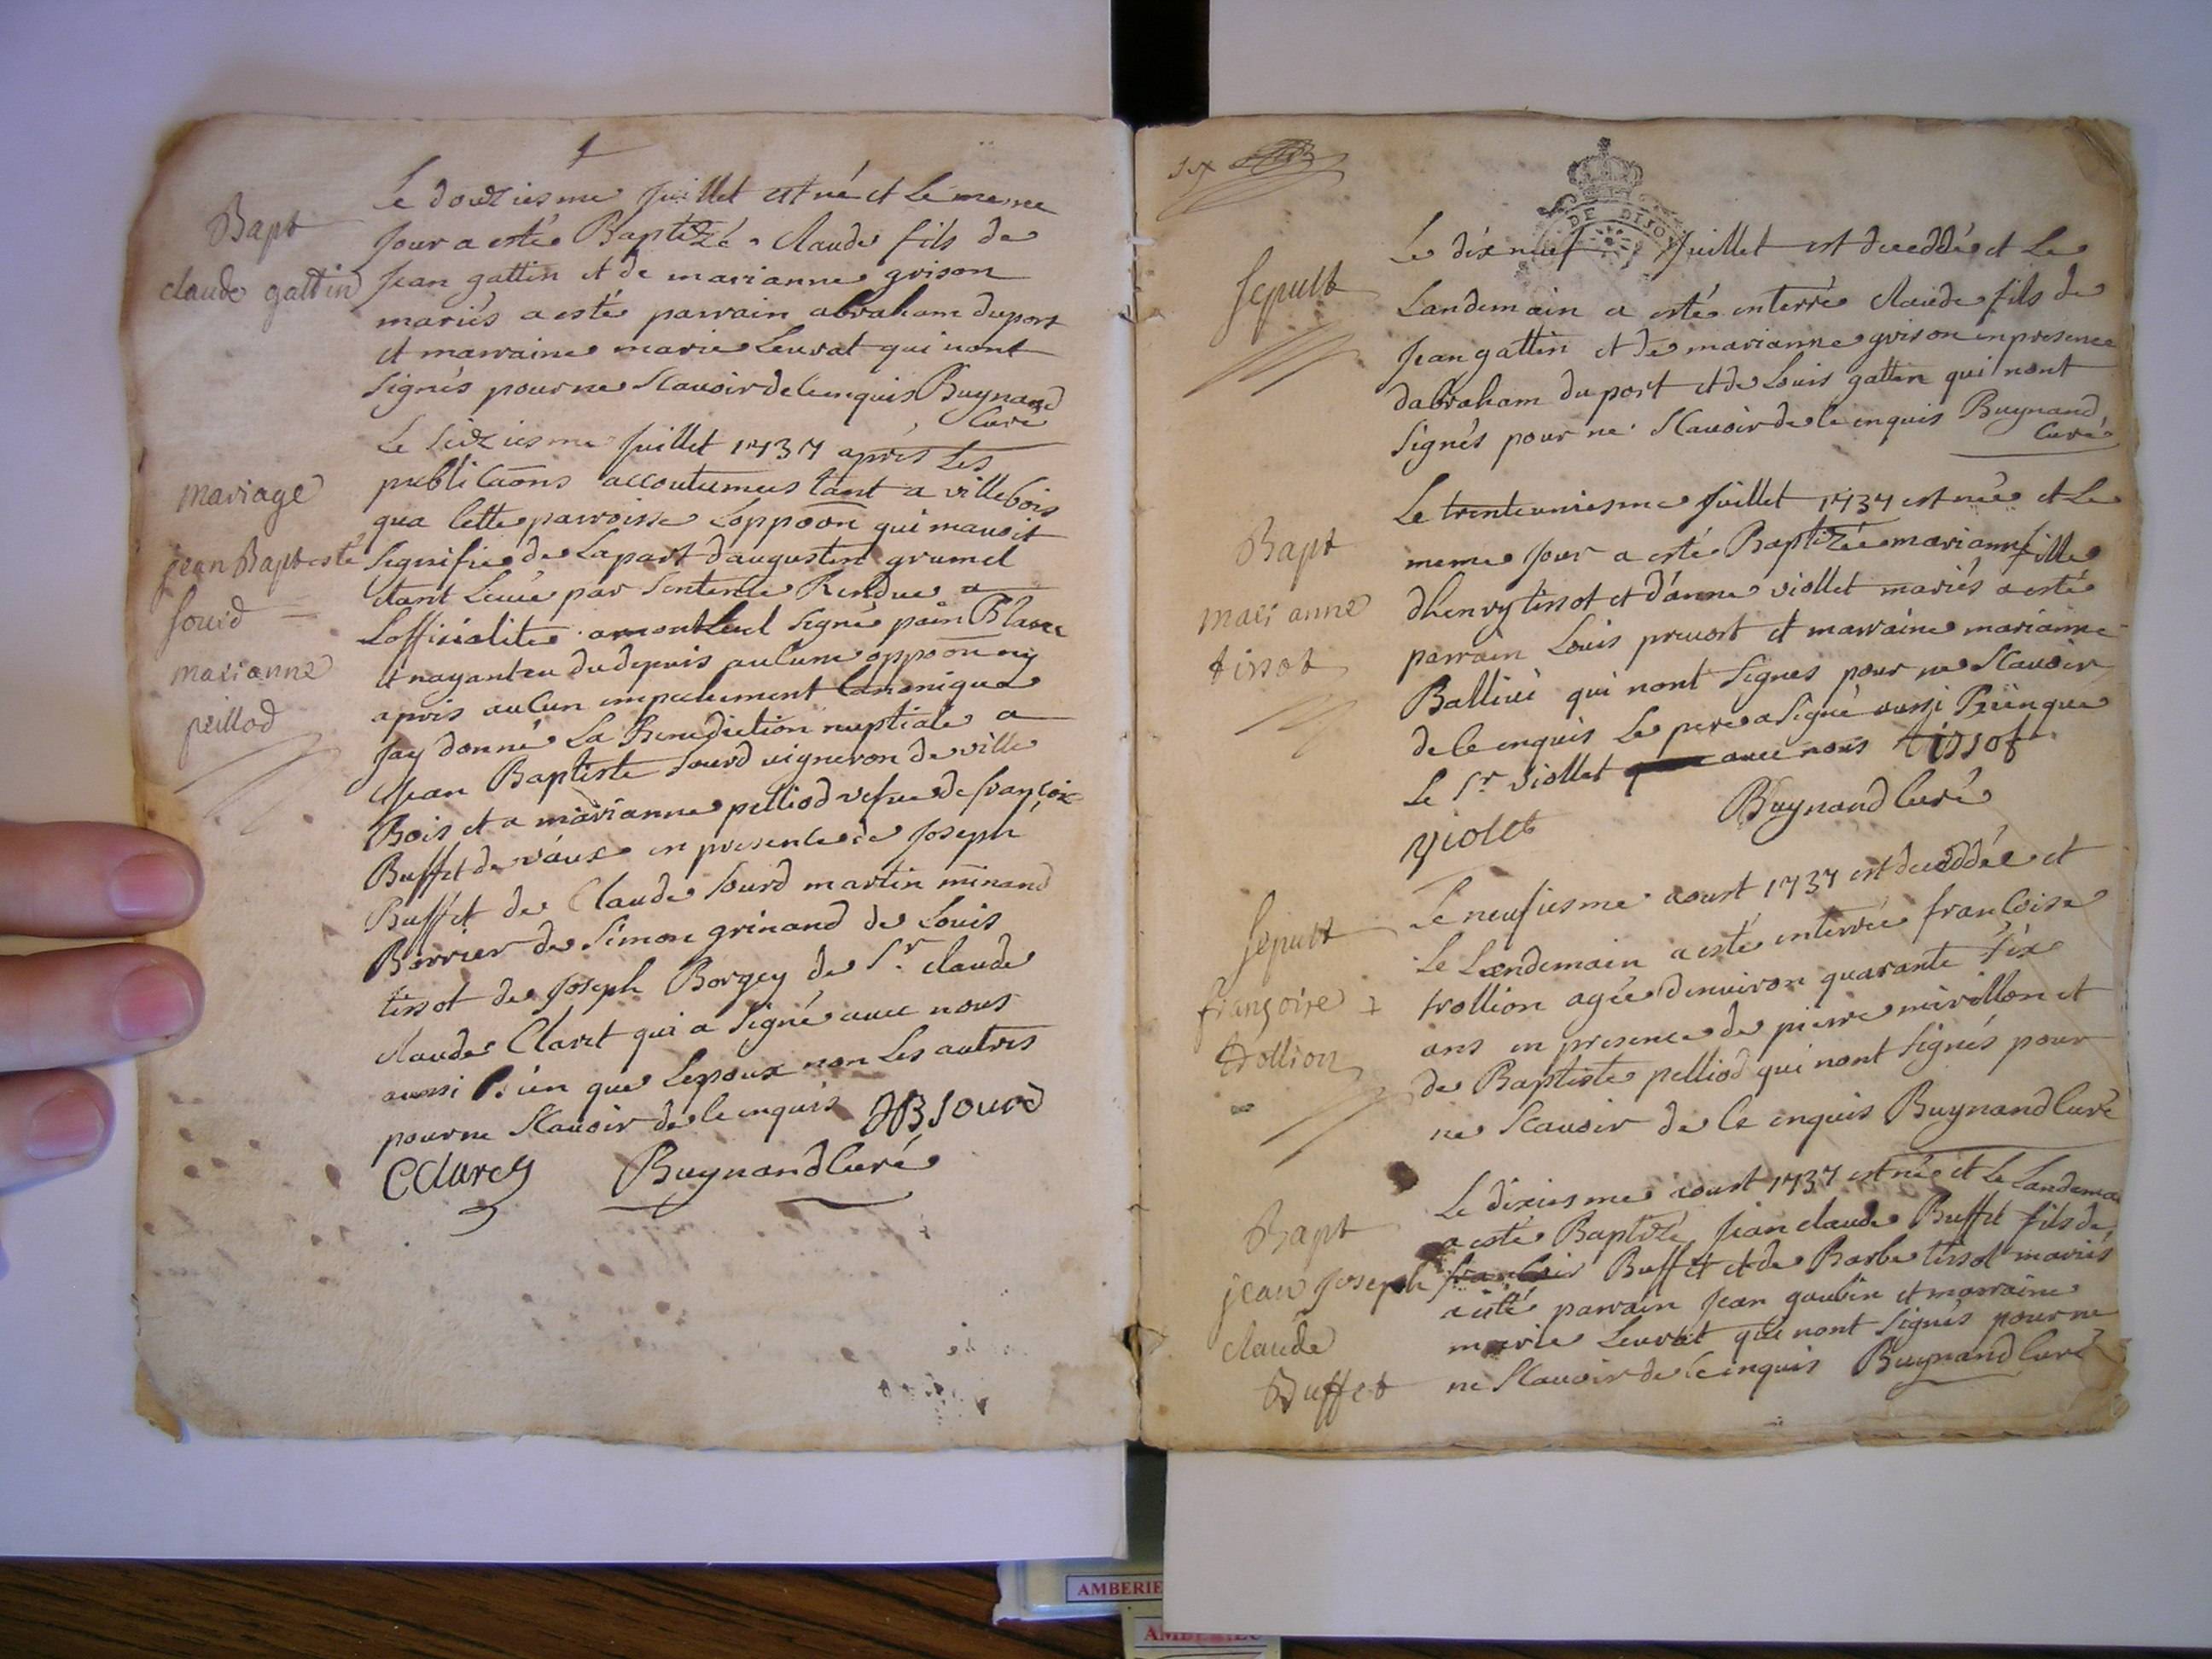 Bapt
claude gattin
Le douziesme Juillet est né et Le meme
Jour a esté Baptizé Claude fils de
Jean gattin et de marianne grison
mariés a esté parrain abraham duport
et marraine marie Leurat qui nont
signés pour ne scauoir de ce enquis Buynand
Curé
mariage
jean Baptiste
sourd
marianne
peillod
Le seiziesme Juillet 1737 apres Les
publicaons accoutumees tant a villebois
qua cette parroisse Loppoon qui mauoit
signifie de La part daugustin grumel
etant Leuée par sentence Rendue a
Lofficialité a montluel signé
et nayant eu du depuis aulcune oppoon ny
apris aulcun empechement canonique
Jay donné La Benediction nuptiale a
Jean Baptiste sourd vigneron de ville
Bois et a marianne pelliod vefue de francois
Buffet de vaux en presence de Joseph
Buffet de Claude sourd martin minand
Borrier de simon grinand de Louis
tissot de Joseph Borgey de Sr. claude
claude Claret qui a signé auec nous
aussi Bien que Lepoux non Les autres
pour ne scauoir de ce enquis JBSourd
CClaret Buynand Curé
six
DE DIJON
Sepult
Le dix neuf Juillet est deceddé et Le
Landemain a esté enterré claude fils de
Jean gattin et de marianne grison en presence
dabraham duport et de Louis gattin qui nont
signés pour ne scauoir de ce enquis Buynand
Curé
Bapt
marianne
tissot
Le trenteuniesme Juillet 1737 est née et Le
meme Jour a esté Baptizée marianne fille
dhenry tissot et danne viollet mariés a esté
parrain Louis preuost et marraine marianne
Balliue qui nont signes pour ne scauoir
de ce enquis Le pere a signé aussi Bien que
Le Sr viollet auec nous tissot
violet Buynand Curé
Sepult
françoise
trollion
Le neufiesme aoust 1737 est deceddée et
Le Landemain a esté enterrée francoise
trollion agée denuiron quarante six
ans en presence de pierre mivillon et
de Baptiste pelliod qui nont signés pour
ne scauoir de ce enquis Buynand Curé
Bapt
jean joseph
claude
Buffet
Le dixiesme aoust 1737 est né et Le Landemai
a esté Baptizé Jean claude Buffet fils de
francois Buffet et de Barbe tissot mariés
a esté parrain Jean goubin et marraine
marie Leurat qui nont signés pour ne
ne scauoir de ce enquis Buynand Curé
AMBERIE